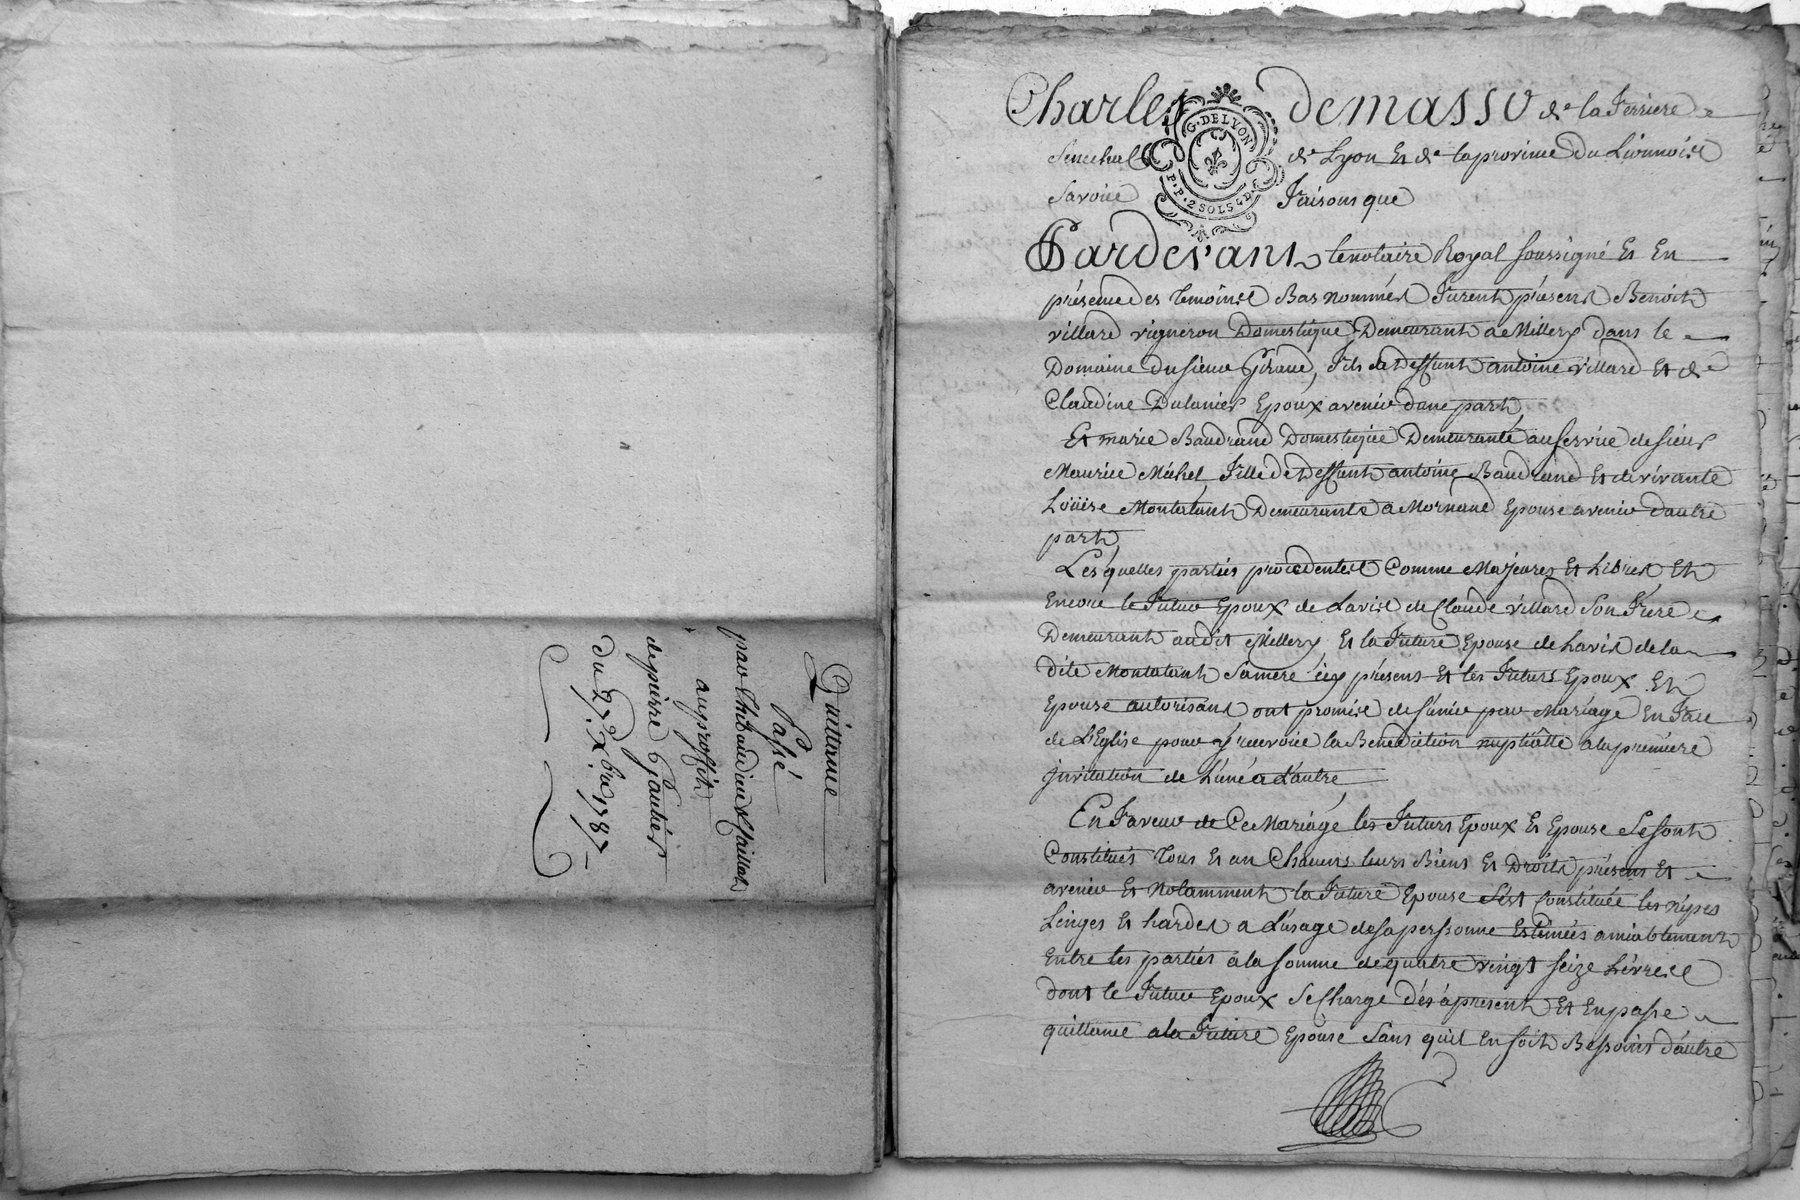 Quittance
Passé
par Thibaudier & Paillat
au proffit
de pierre Gautier
du 27 Xbre 1787
Charles demasso de la Ferriere
Senechal de Lyon Et de la province du Lionnois
Savoir Faisons que
G. DE LYON
P. P. 2 SOLS 4 D.
Pardevant le notaire Royal soussigné Et En
présence des temoins Bas nommés Furent présens Benoit
villard vigneron Domestique Demeurant a Millery dans le
Domaine du sieur Giraud, Fils de Deffunt antoine villard Et de
Claudine Epoux avenir dune part
Et marie Baudrand Domestique Demeurante au service de sieur
Maurice Michel, Fille de Deffunt antoine Baudrand Et de vivante
Loüise Montatant Demeurante a Mornand Epouse avenir dautre
part
Lesquelles parties procedentes Comme Majeures Et Libres Et
Encore le Futur Epoux de Lavis de Claude villard Son Frere
Demeurant audit Millery Et la Future Epouse de Lavis de la
dite Montatant Sa mere icy présens Et les Futurs Epoux Et
Epouse autorisant ont promis de sunir par Mariage En Face
de LEglise pour y recevoir la Benediction nuptialle a la premiere
invitation de L'une a L'autre
En Faveur de Ce Mariage les Futurs Epoux Et Epouse Se sont
Constitués tous Et un Chacuns leurs Biens Et Droits présens Et
avenir Et Notamment la Future Epouse Sest Constituée les nipes
Linges Et hardes a Lusage de sa perssonne Estimées amiablement
Entre les parties a la somme de quatre vingt seize Livres
dont le Futur Epoux Se Charge dès apresent Et En passe
quittance a la Future Epouse Sans quil En soit Bessoins dautre